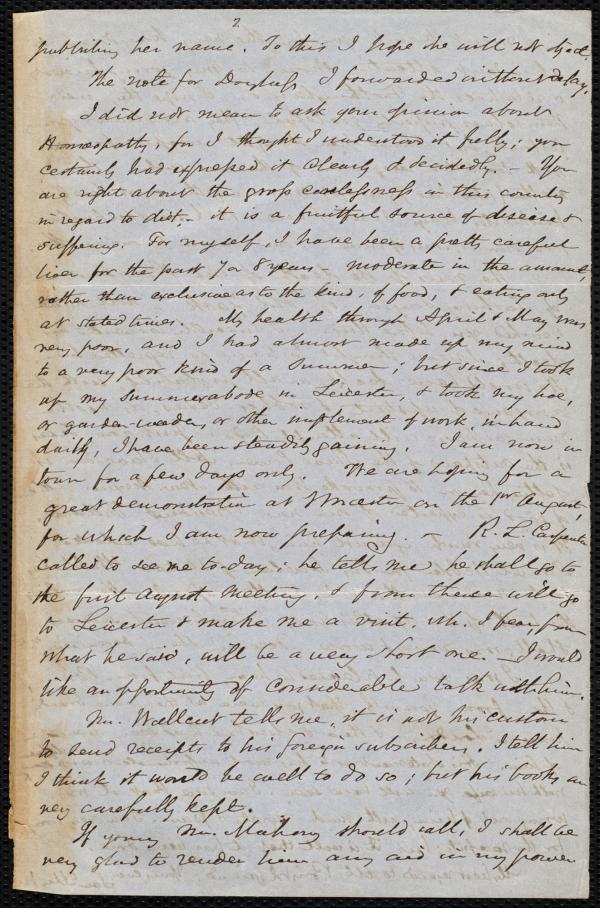 2
publishing her name. To this I hope she will not object.
The note for Douglass I forwarded without delay.
I did not mean to ask your opinion about
Homœopathy, for I thought I understood it fully; you
certainly had expressed it clearly & decidedly. – You
are right about the gross carelessness in this country
in regard to diet, – it is a fruitful source of disease &
suffering. For myself, I have been a pretty careful
liver for the past 7 or 8 years – moderate in the amount,
rather than exclusive as to the kind, of food, & eating only
at stated times. My health through April & May was
very poor, and I had almost made up my mind
to a very poor kind of a Summer; but since I took
up my summer abode in Leicester, & took my hoe,
or garden-weeder, or other implement of work, in hand
daily, I have been steadily gaining. I am now in
town for a few days only. We are hoping for a
great demonstration at Worcester on the 1st August,
for which I am now preparing. – R. L. Carpenter
called to see me to-day; he tells me he shall go to
the first August meeting, & from thence will go
to Leicester & make me a visit, wh. I fear, from
what he said, will be a very short one. – I would
like an opportunity of considerable talk with him.
Mr. Wallcut tells me, it is not his custom
to send receipts to his foreign subscribers. I tell him
I think it would be well to do so; but his books are
very carefully kept.
If young Mr. Mahony should call, I shall be
very glad to render him any aid in my power